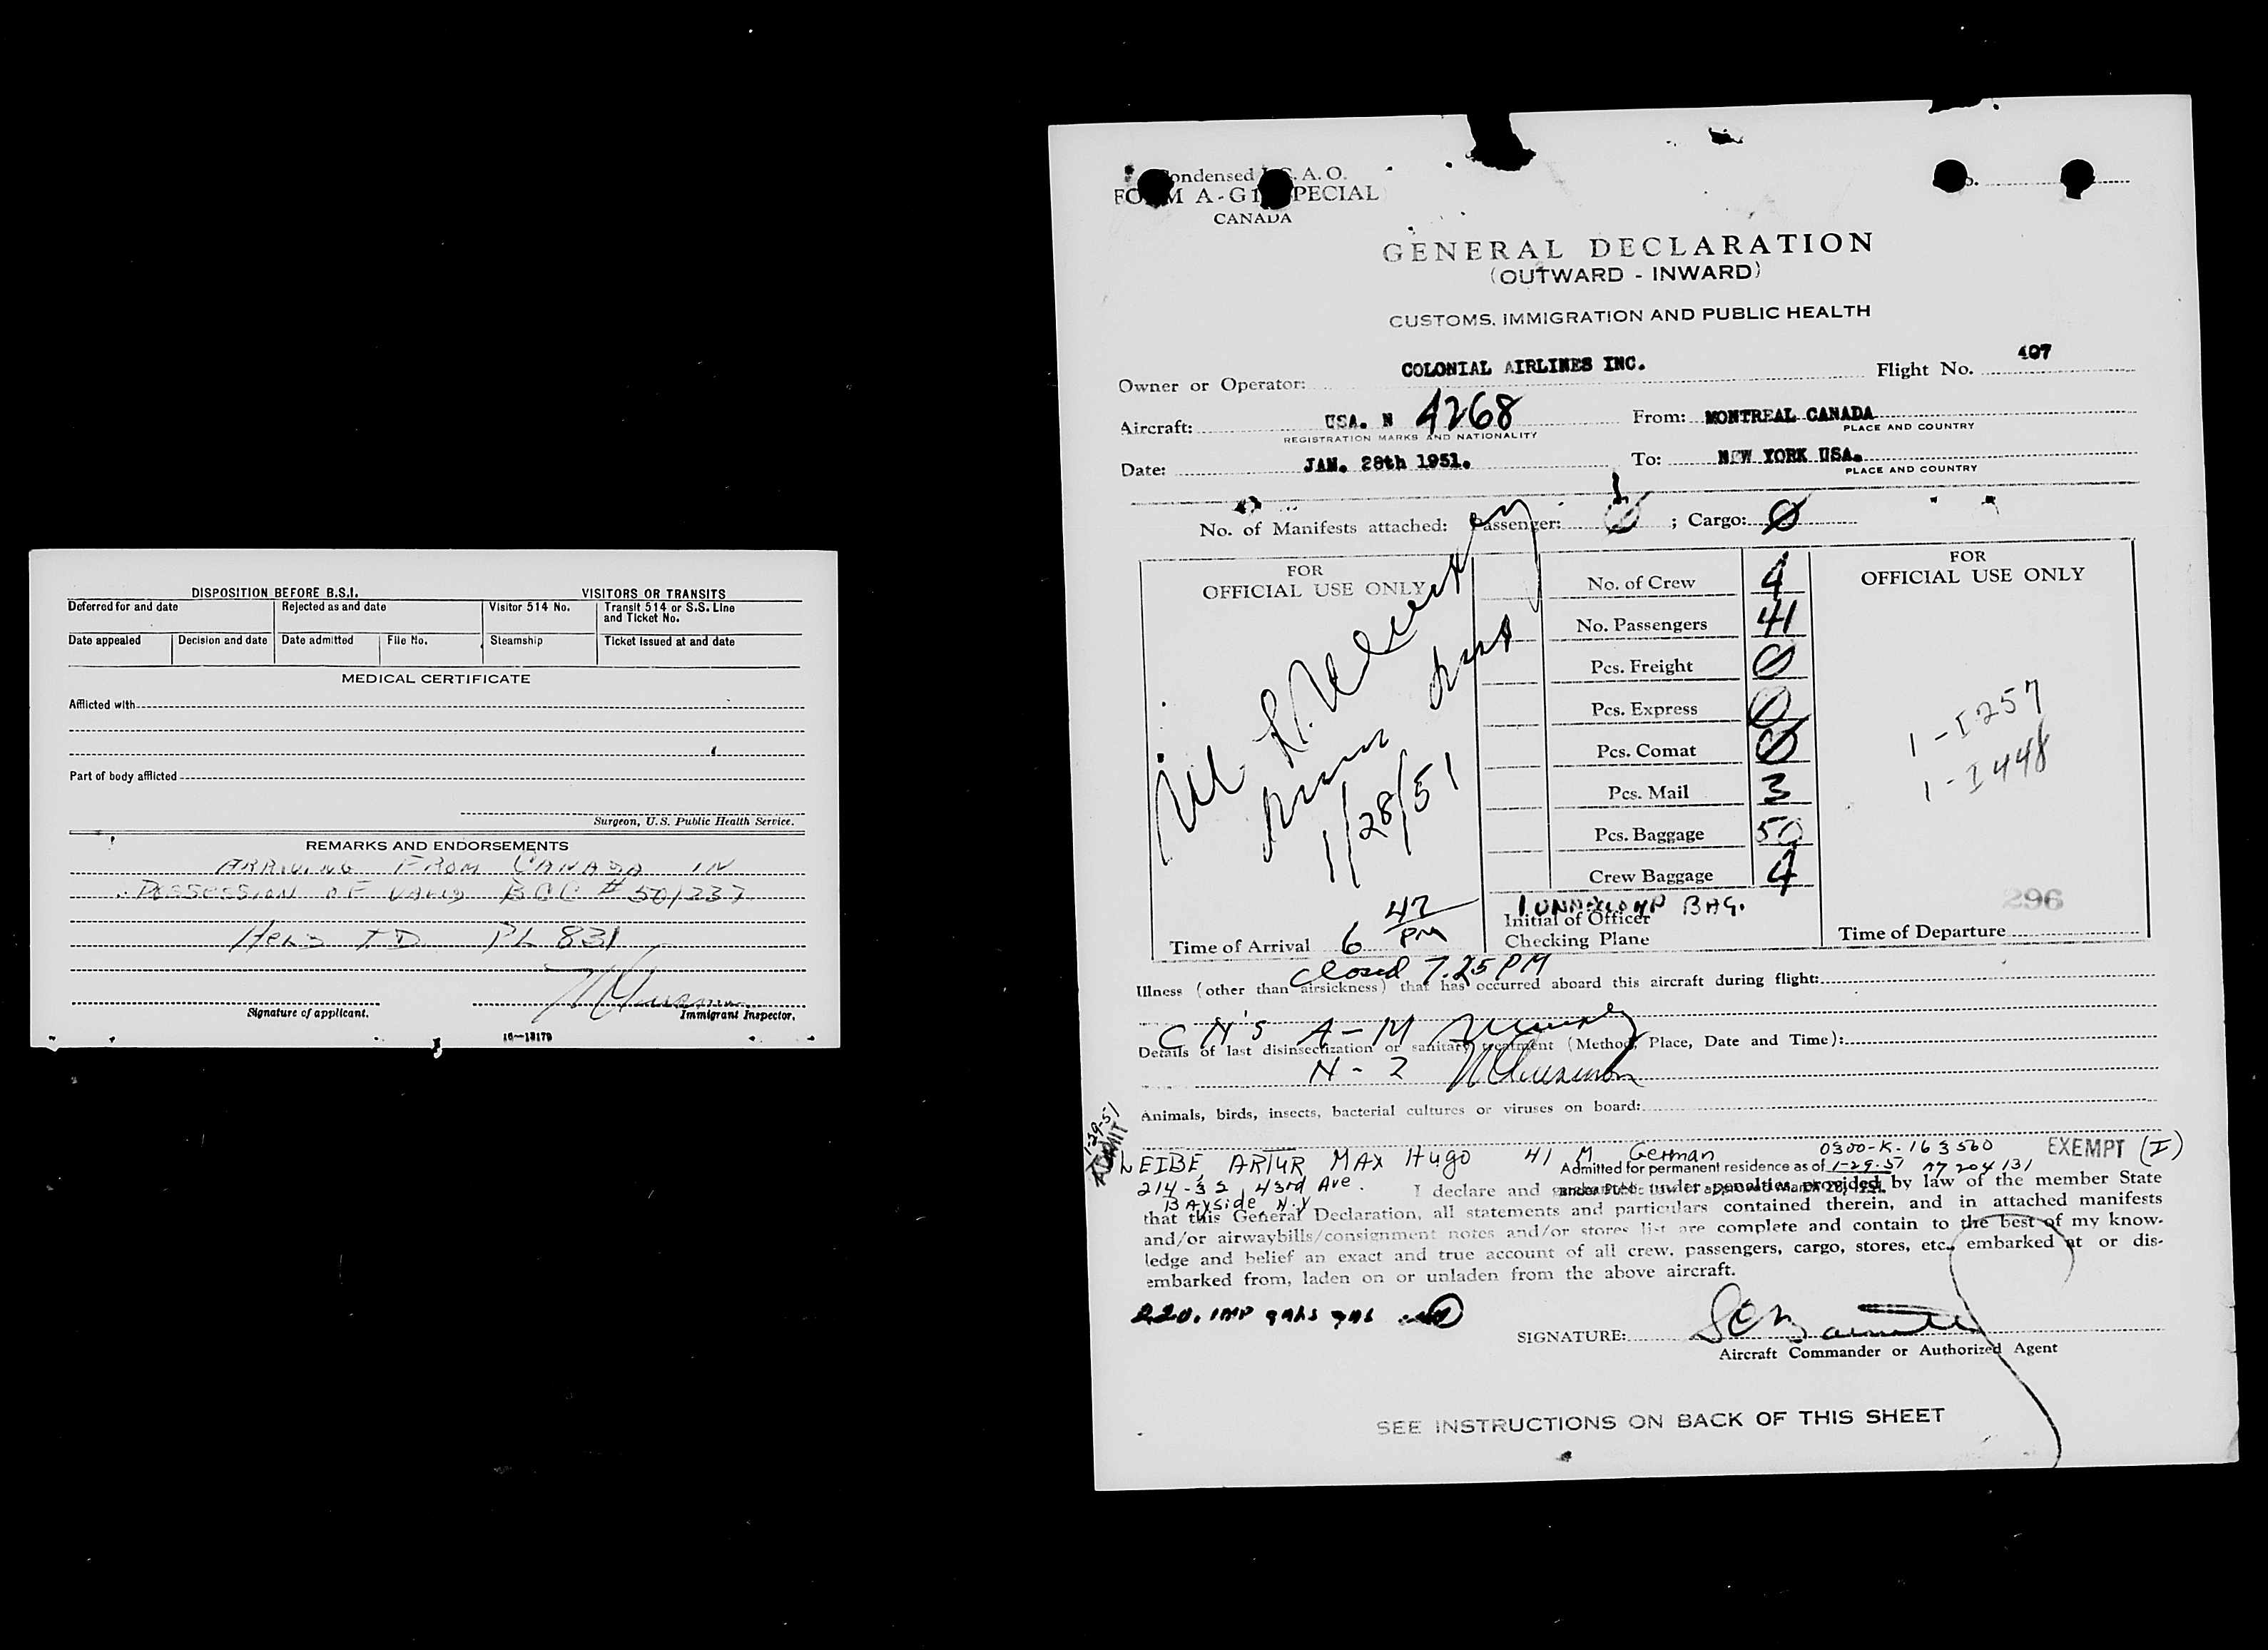 DISPOSITION BEFORE B.S.I.
VISITORS OR TRANSITS
Deferred for and date
Rejected as and date
Visitor 514 No.
Transit 514 or S.S. Line
and Ticket No.
Date appealed
Decision and date
Date admitted
File No.
Steamship
Ticket issued at and date
MEDICAL CERTIFICATE
Afflicted with
Part of body afflicted
Surgeon, U.S. Public Health Service.
REMARKS AND ENDORSEMENTS
ARRIVING FROM CANADA IN
POSSESSION OF VALID BCC # 501237
Held TD PL 831
Signature of applicant.
Immigrant Inspector.
16—13179
Condensed I.C.A.O.
FORM A-G1 SPECIAL
CANADA
GENERAL DECLARATION
(OUTWARD - INWARD)
CUSTOMS, IMMIGRATION AND PUBLIC HEALTH
Owner or Operator: COLONIAL AIRLINES INC. Flight No. 407
Aircraft: USA. N 4268 From: MONTREAL CANADA
REGISTRATION MARKS AND NATIONALITY PLACE AND COUNTRY
Date: JAN. 28th 1951. To: NEW YORK USA.
PLACE AND COUNTRY
No. of Manifests attached: Passenger: 1 ; Cargo: Ø
FOR
OFFICIAL USE ONLY
1/28/51
Time of Arrival 6 47 PM
No. of Crew 4
No. Passengers 41
Pcs. Freight Ø
Pcs. Express Ø
Pcs. Comat Ø
Pcs. Mail 3
Pcs. Baggage 50
Crew Baggage 4
BAG.
Initial of Officer
Checking Plane
FOR
OFFICIAL USE ONLY
1-I257
1-I448
296
Time of Departure
Closed 7.25 PM
Illness (other than airsickness) that has occurred aboard this aircraft during flight:
C N'S A-M
Details of last disinsectization or sanitary treatment (Method, Place, Date and Time):
N-2
Animals, birds, insects, bacterial cultures or viruses on board:
1-29-51
ADMIT
LEIBE, ARTUR MAX Hugo 41 M German 0300-K-163560 EXEMPT (I)
Admitted for permanent residence as of 1-29-51 A7 204 131
214-32, 43rd Ave.
Bayside, N.Y
I declare and guarantee under penalties provided by law of the member State
that this General Declaration, all statements and particulars contained therein, and in attached manifests
and/or airwaybills/consignment notes and/or stores list are complete and contain to the best of my know-
ledge and belief an exact and true account of all crew, passengers, cargo, stores, etc., embarked at or dis-
embarked from, laden on or unladen from the above aircraft.
220. IMP gals gas
SIGNATURE:
Aircraft Commander or Authorized Agent
SEE INSTRUCTIONS ON BACK OF THIS SHEET